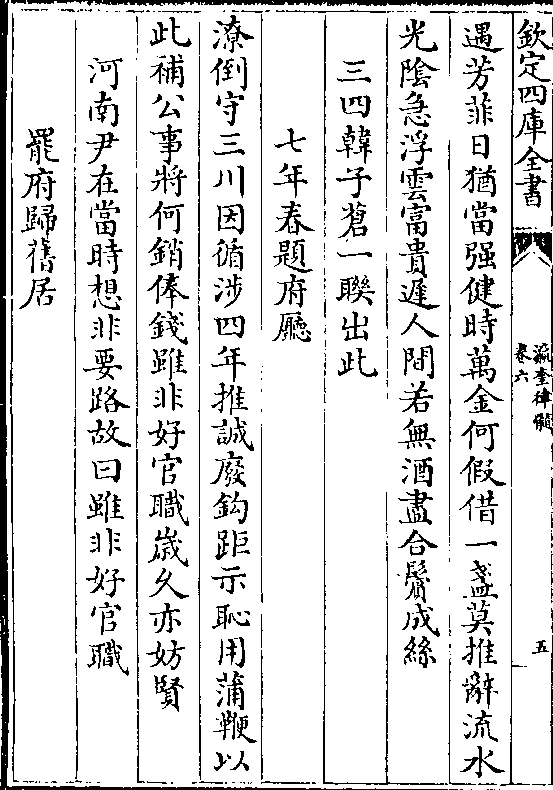 欽定四庫全書
瀛奎律髓
卷六
五
遇芳菲日猶當强健時萬金何假借一盞莫推辭流水
光陰急浮雲富貴遲人間若無酒盡合鬢成絲
三四韓子蒼一聯出此
七年春題府廳
潦倒守三川因循涉四年推誠廢鈎距示恥用蒲鞭以
此補公事將何銷俸錢雖非好官職歲久亦妨賢
河南尹在當時想非要路故曰雖非好官職
罷府歸舊居